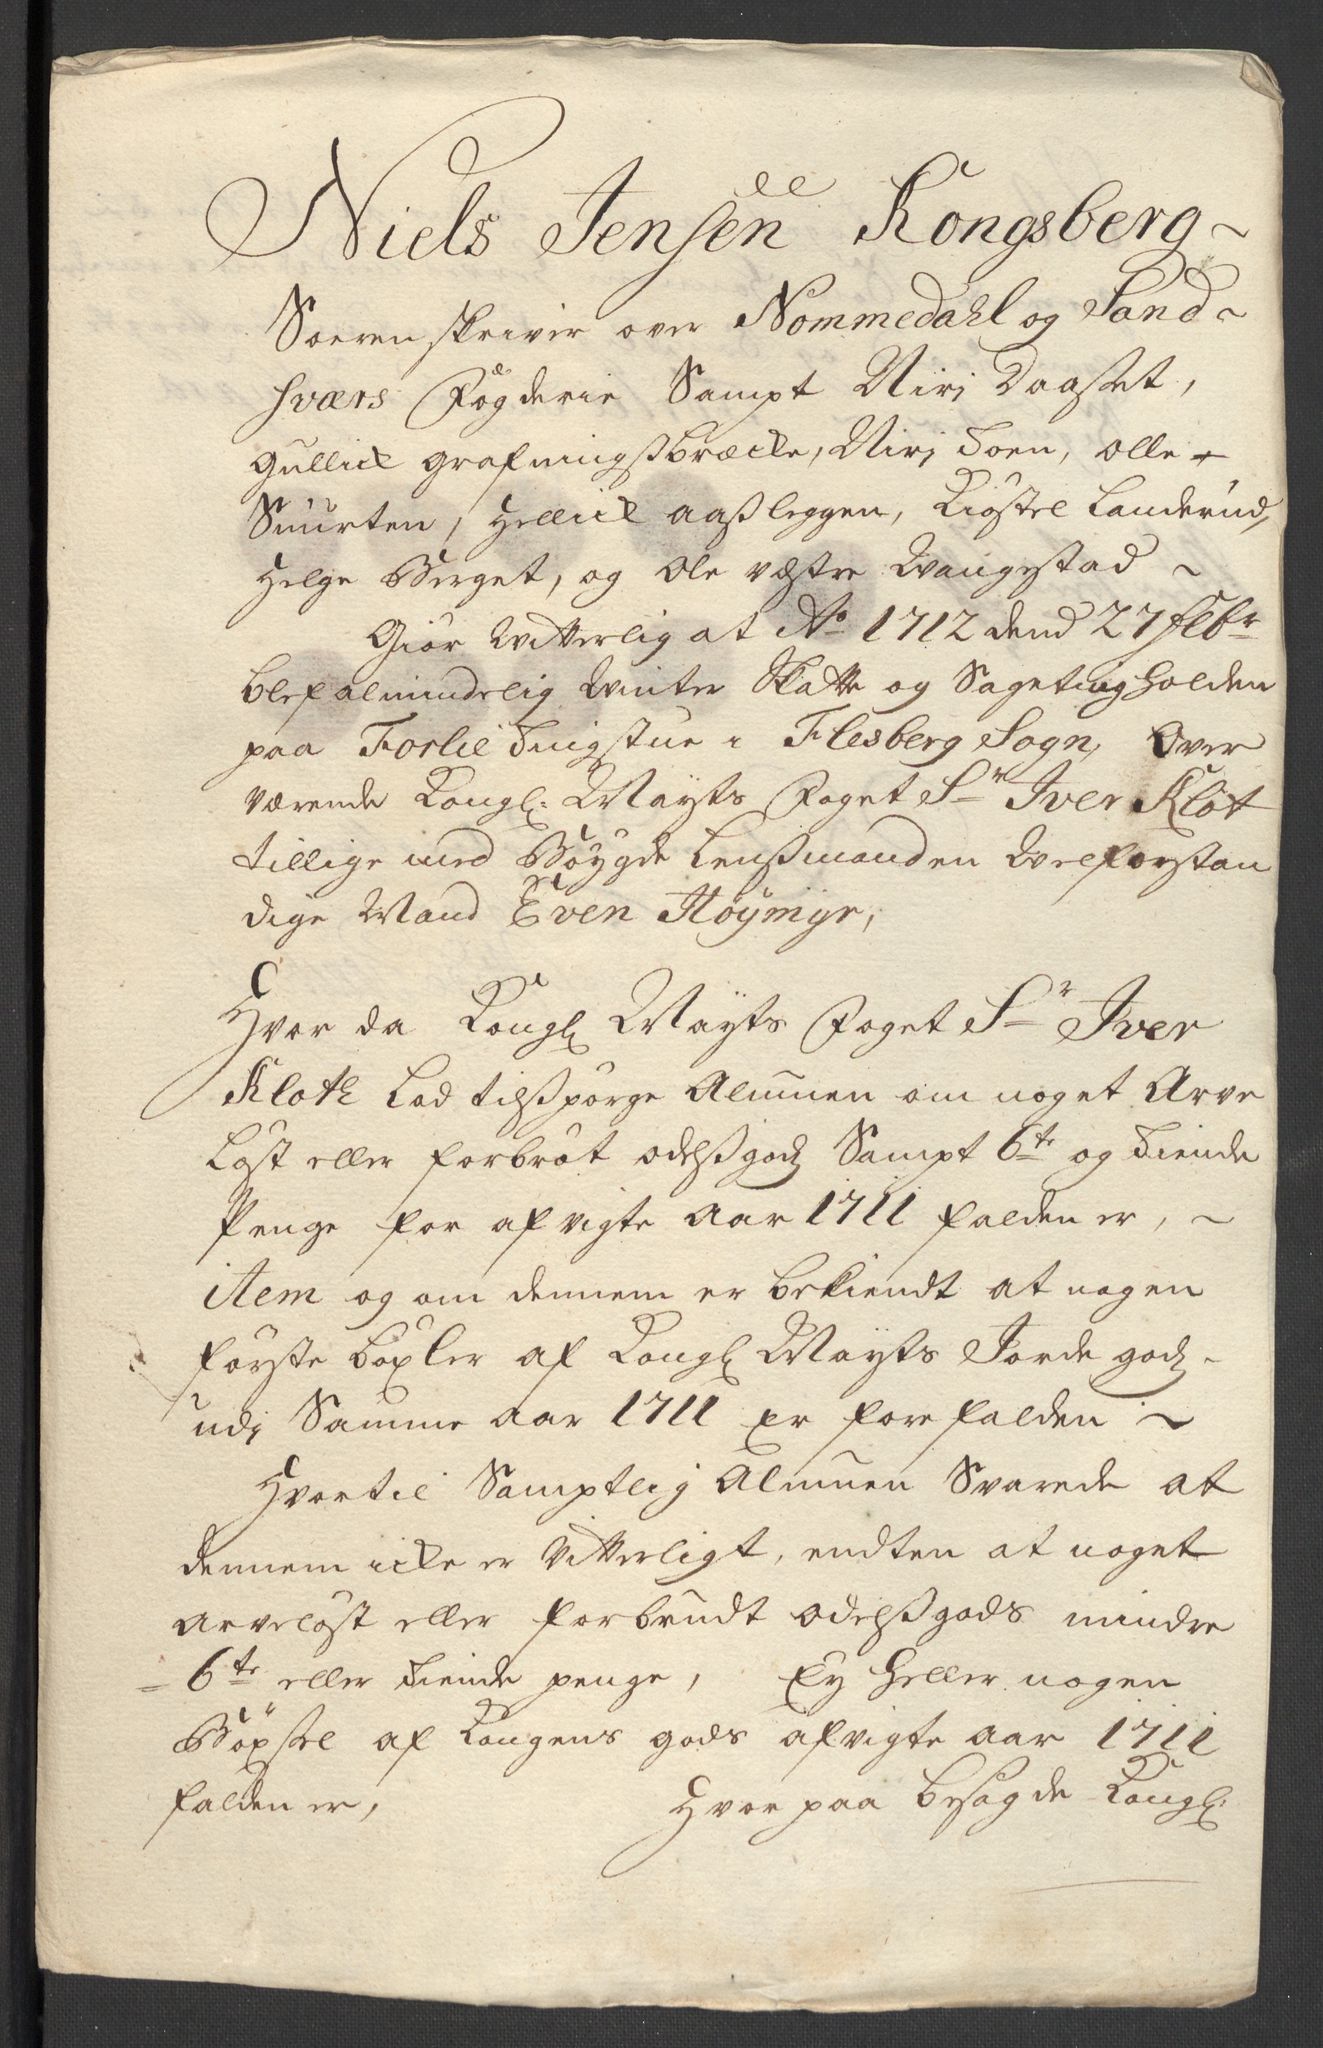 Niels Jensen Kongsberg
Soerenskriver over Nommedahl og Sand-
sværs Fogderie Sampt Niri Daaset,
Gullick Grafningsbræcke, Niri Foen, olle
Snurten, Hellick Aasleggen, Kiøstel Landerud,
Helge Berget, og Ole Vestre Wangestad
Giør Witterlig at Ao 1712 dend 27 febr
blef almindelig Winter Skatte og Sageting holden
paa Forlie Tingstue i Flesberg Sogn, Over
værende Kongl: Mayts Foget Sr Iver Klot
tillige med Bøygde Lensmanden Welforstan
dige Mand Even Høymyr,
Hvor da Kongl Mayts Foget Sr Iver
Klote Lod tilspørge Almuen om noget Arve
Løst eller forbrøt odelsgods Sampt 6te og Tiende
Penge for afvigte aar 1711 falden er,
item og om dennem er bekiendt at nogen
første böxler af Kongl Mayts Jorde gods
udi Samme aar 1711 er forefalden
Hvortil Samptlig Almuen Svarede at
dennem icke er Vitterligt, endten at noget
arveløst eller forbrudt odelsgods mindre
6te eller Tiende penge, Ey heller nogen
Böxsel af Kongens gods afvigte aar 1711
falden er, Hvor paa besagde Kongl: